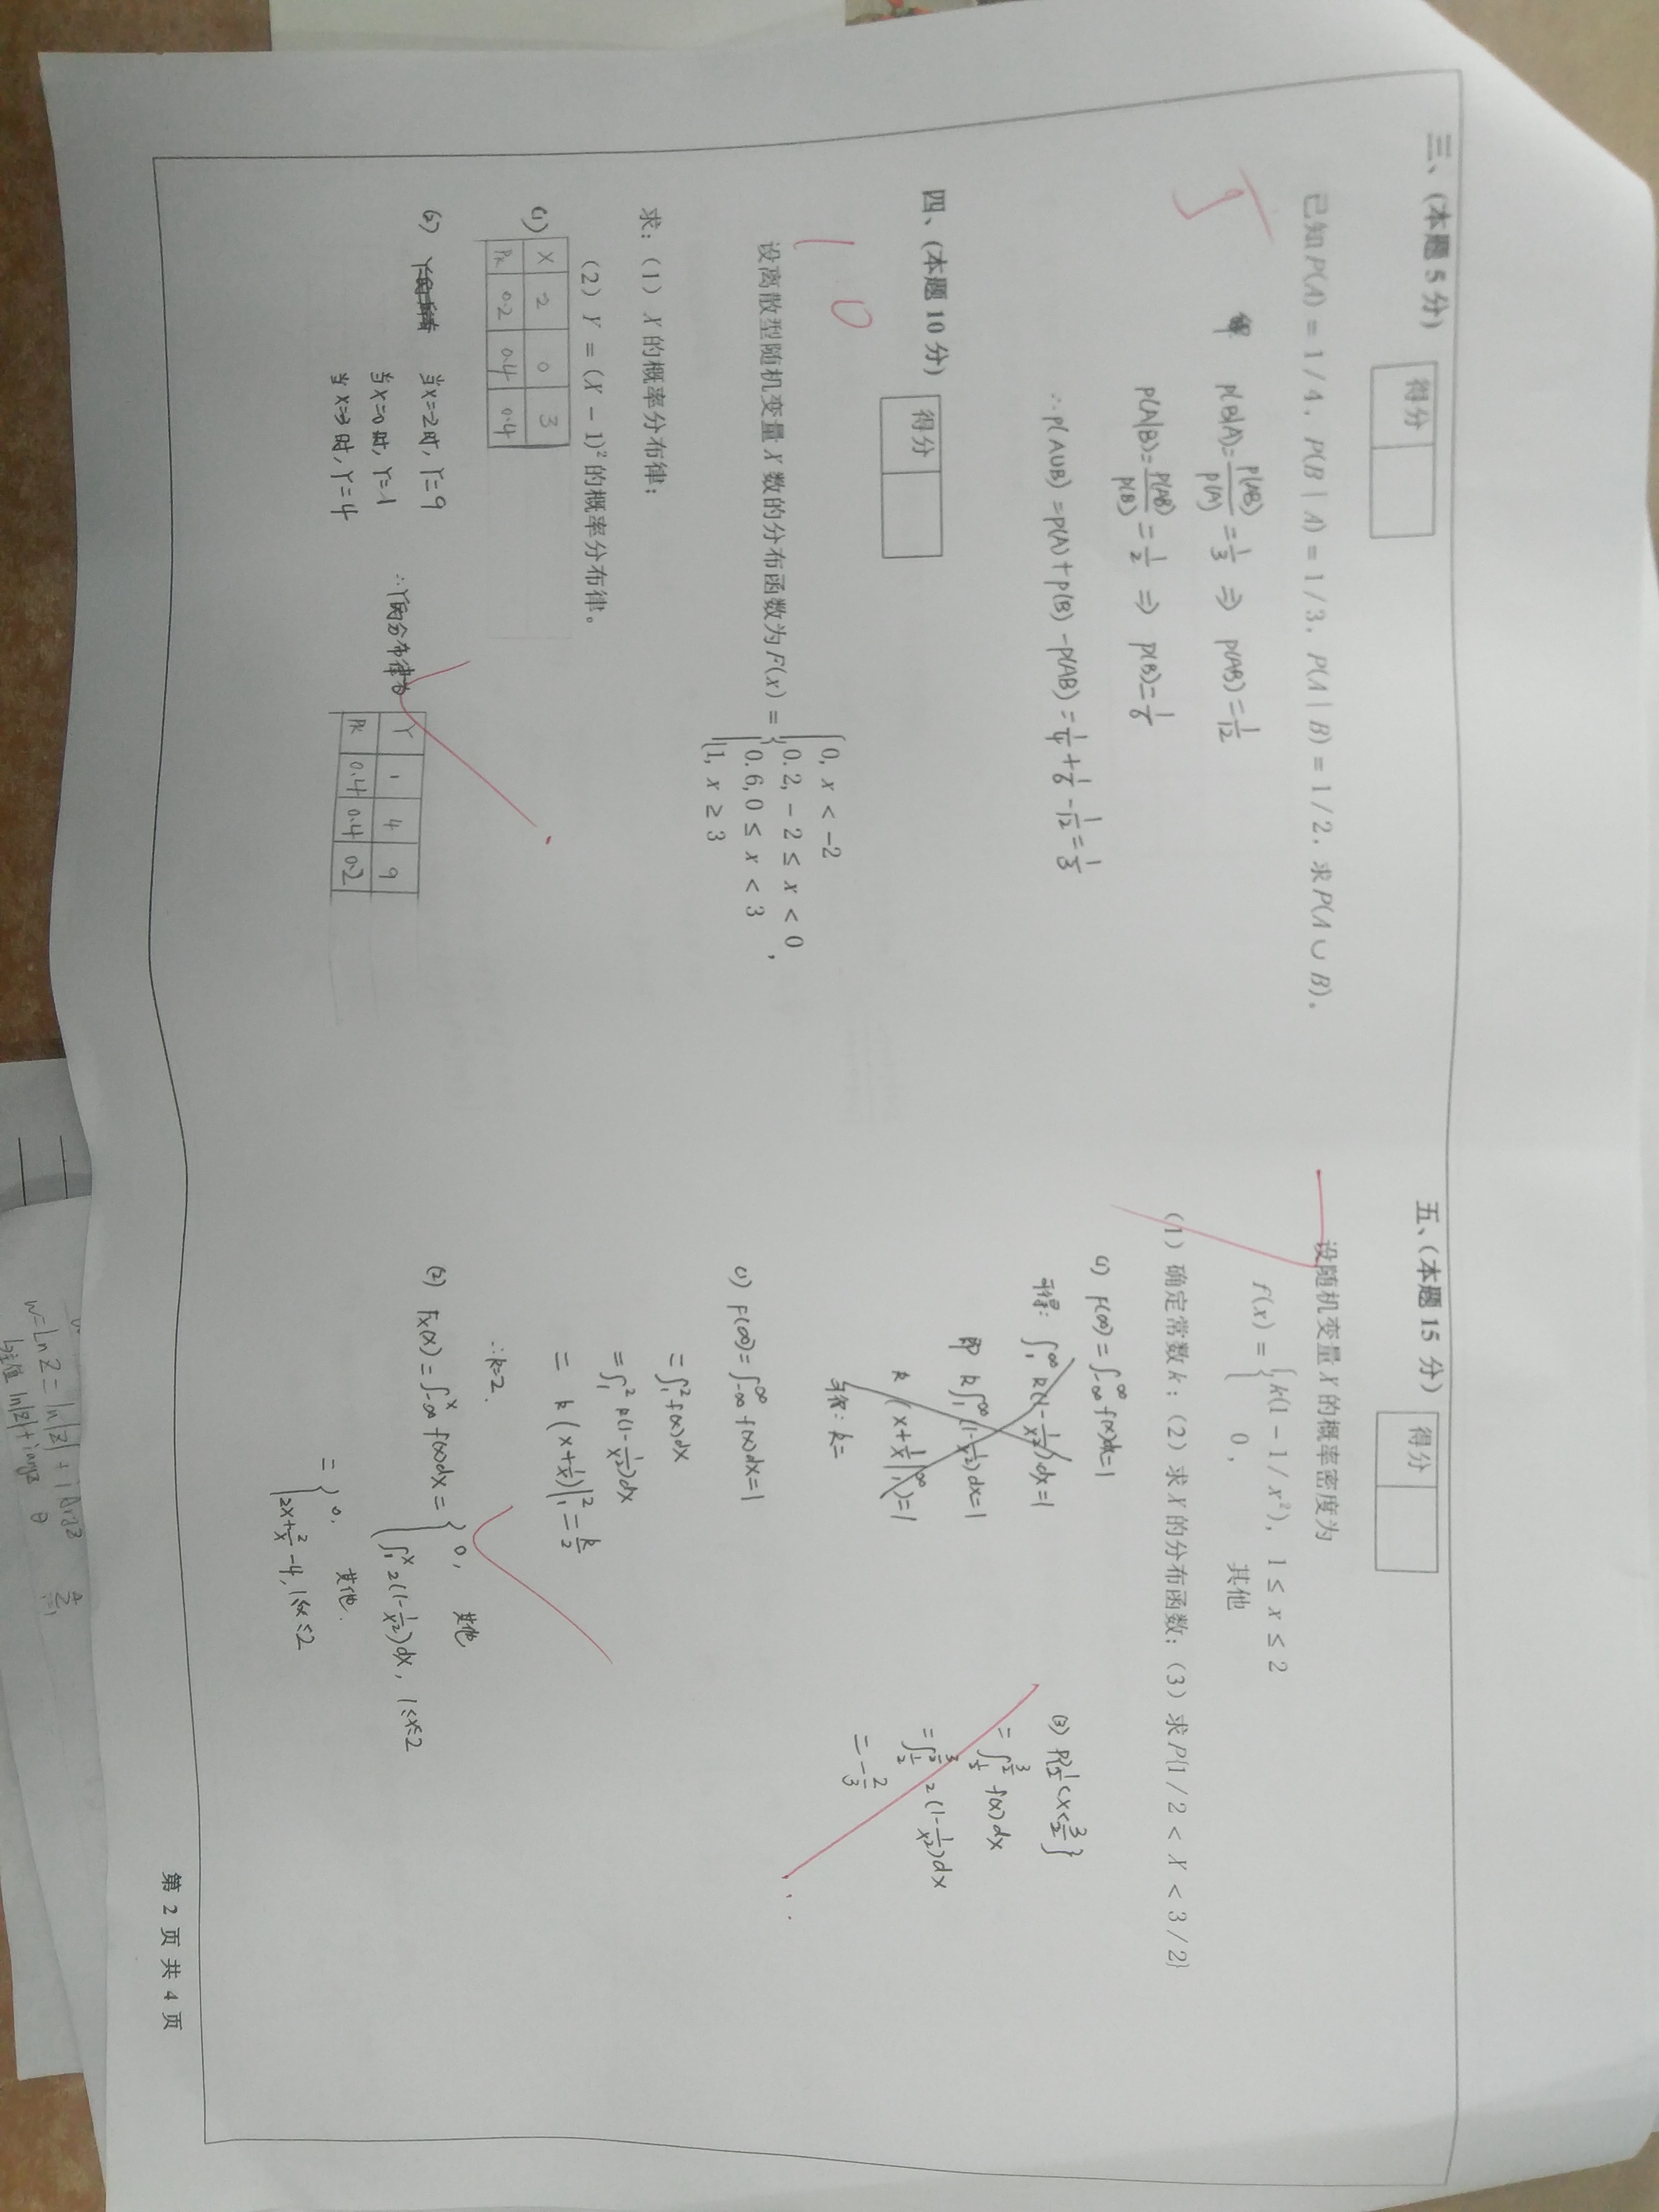 三、(本题 5 分)
得分
已知 P(A) = 1 / 4, P(B | A) = 1 / 3, P(A | B) = 1 / 2, 求 P(A ∪ B)。
5
解 P(B|A)=P(AB)/P(A)=1/3 ⇒ P(AB)=1/12
P(A|B)=P(AB)/P(B)=1/2 ⇒ P(B)=1/6
∴P(A∪B)=P(A)+P(B)-P(AB)=1/4+1/6-1/12=1/3
四、(本题 10 分)
得分
10
设离散型随机变量 X 数的分布函数为 F(x) = {
0, x < -2
0.2, - 2 ≤ x < 0
0.6, 0 ≤ x < 3
1, x ≥ 3
,
求:(1) X 的概率分布律;
(2) Y = (X - 1)² 的概率分布律。
(1)
X -2 0 3
Pk 0.2 0.4 0.4
(2) 当X=-2时, Y=9
当X=0时, Y=1
当X=3时, Y=4
∴Y的分布律为
Y 1 4 9
Pk 0.4 0.4 0.2
五、(本题 15 分)
得分
7
设随机变量 X 的概率密度为
f(x) = { k(1 - 1 / x²), 1 ≤ x ≤ 2
0, 其他
(1) 确定常数 k; (2) 求 X 的分布函数; (3) 求 P{1 / 2 < X < 3 / 2}
(1) F(∞)=∫_{-∞}^{∞} f(x)dx=1
可得: ∫_1^∞ k(1-1/x²)dx=1
即 k∫_1^∞ (1-1/x²)dx=1
k (x+1/x|_1^∞)=1
可得: k=
(1) F(∞)=∫_{-∞}^{∞} f(x)dx=1
=∫_1^2 f(x)dx
=∫_1^2 k(1-1/x²)dx
= k(x+1/x)|_1^2=k/2
∴k=2.
(2) Fx(x)=∫_{-∞}^x f(x)dx={ 0, 其他
∫_1^x 2(1-1/x²)dx, 1≤x≤2
={ 0, 其他.
2x+2/x-4, 1≤x≤2
(3) P{1/2<X<3/2}
=∫_{1/2}^{3/2} f(x)dx
=∫_{1/2}^{3/2} 2(1-1/x²)dx
=-2/3
第 2 页 共 4 页
w=Ln Z = ln|Z| + i Arg Z
主值 ln|Z|+i arg Z θ